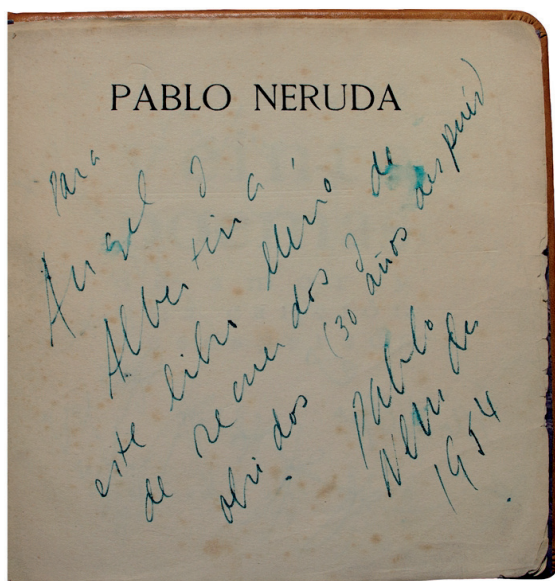 PABLO NERUDA
Para
Angel y
Albertina,
este libro lleno de
de recuerdos y de
olvidos (30 años después)
Pablo
Neruda
1954.